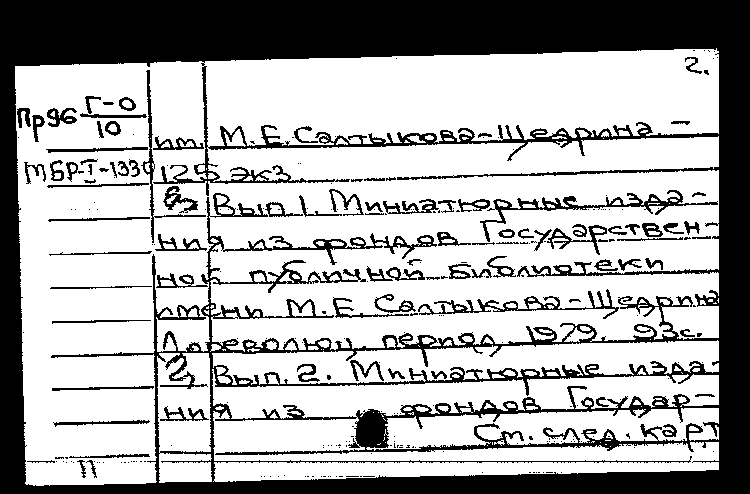 2.
Пр96 Г-0/10
им. М.Е.Салтыкова-Щедрина. -
МБР-I-1330 125 экз.
Вып 1. Миниатюрные изда-
ния из фондов Государствен-
ной публичной библиотеки
имени М.Е. Салтыкова-Щедрина
Дореволюц. период. 1979. 93с.
2, Вып. 2. Миниатюрные изда-
ния из фондов Государ-
См. след. карт
11